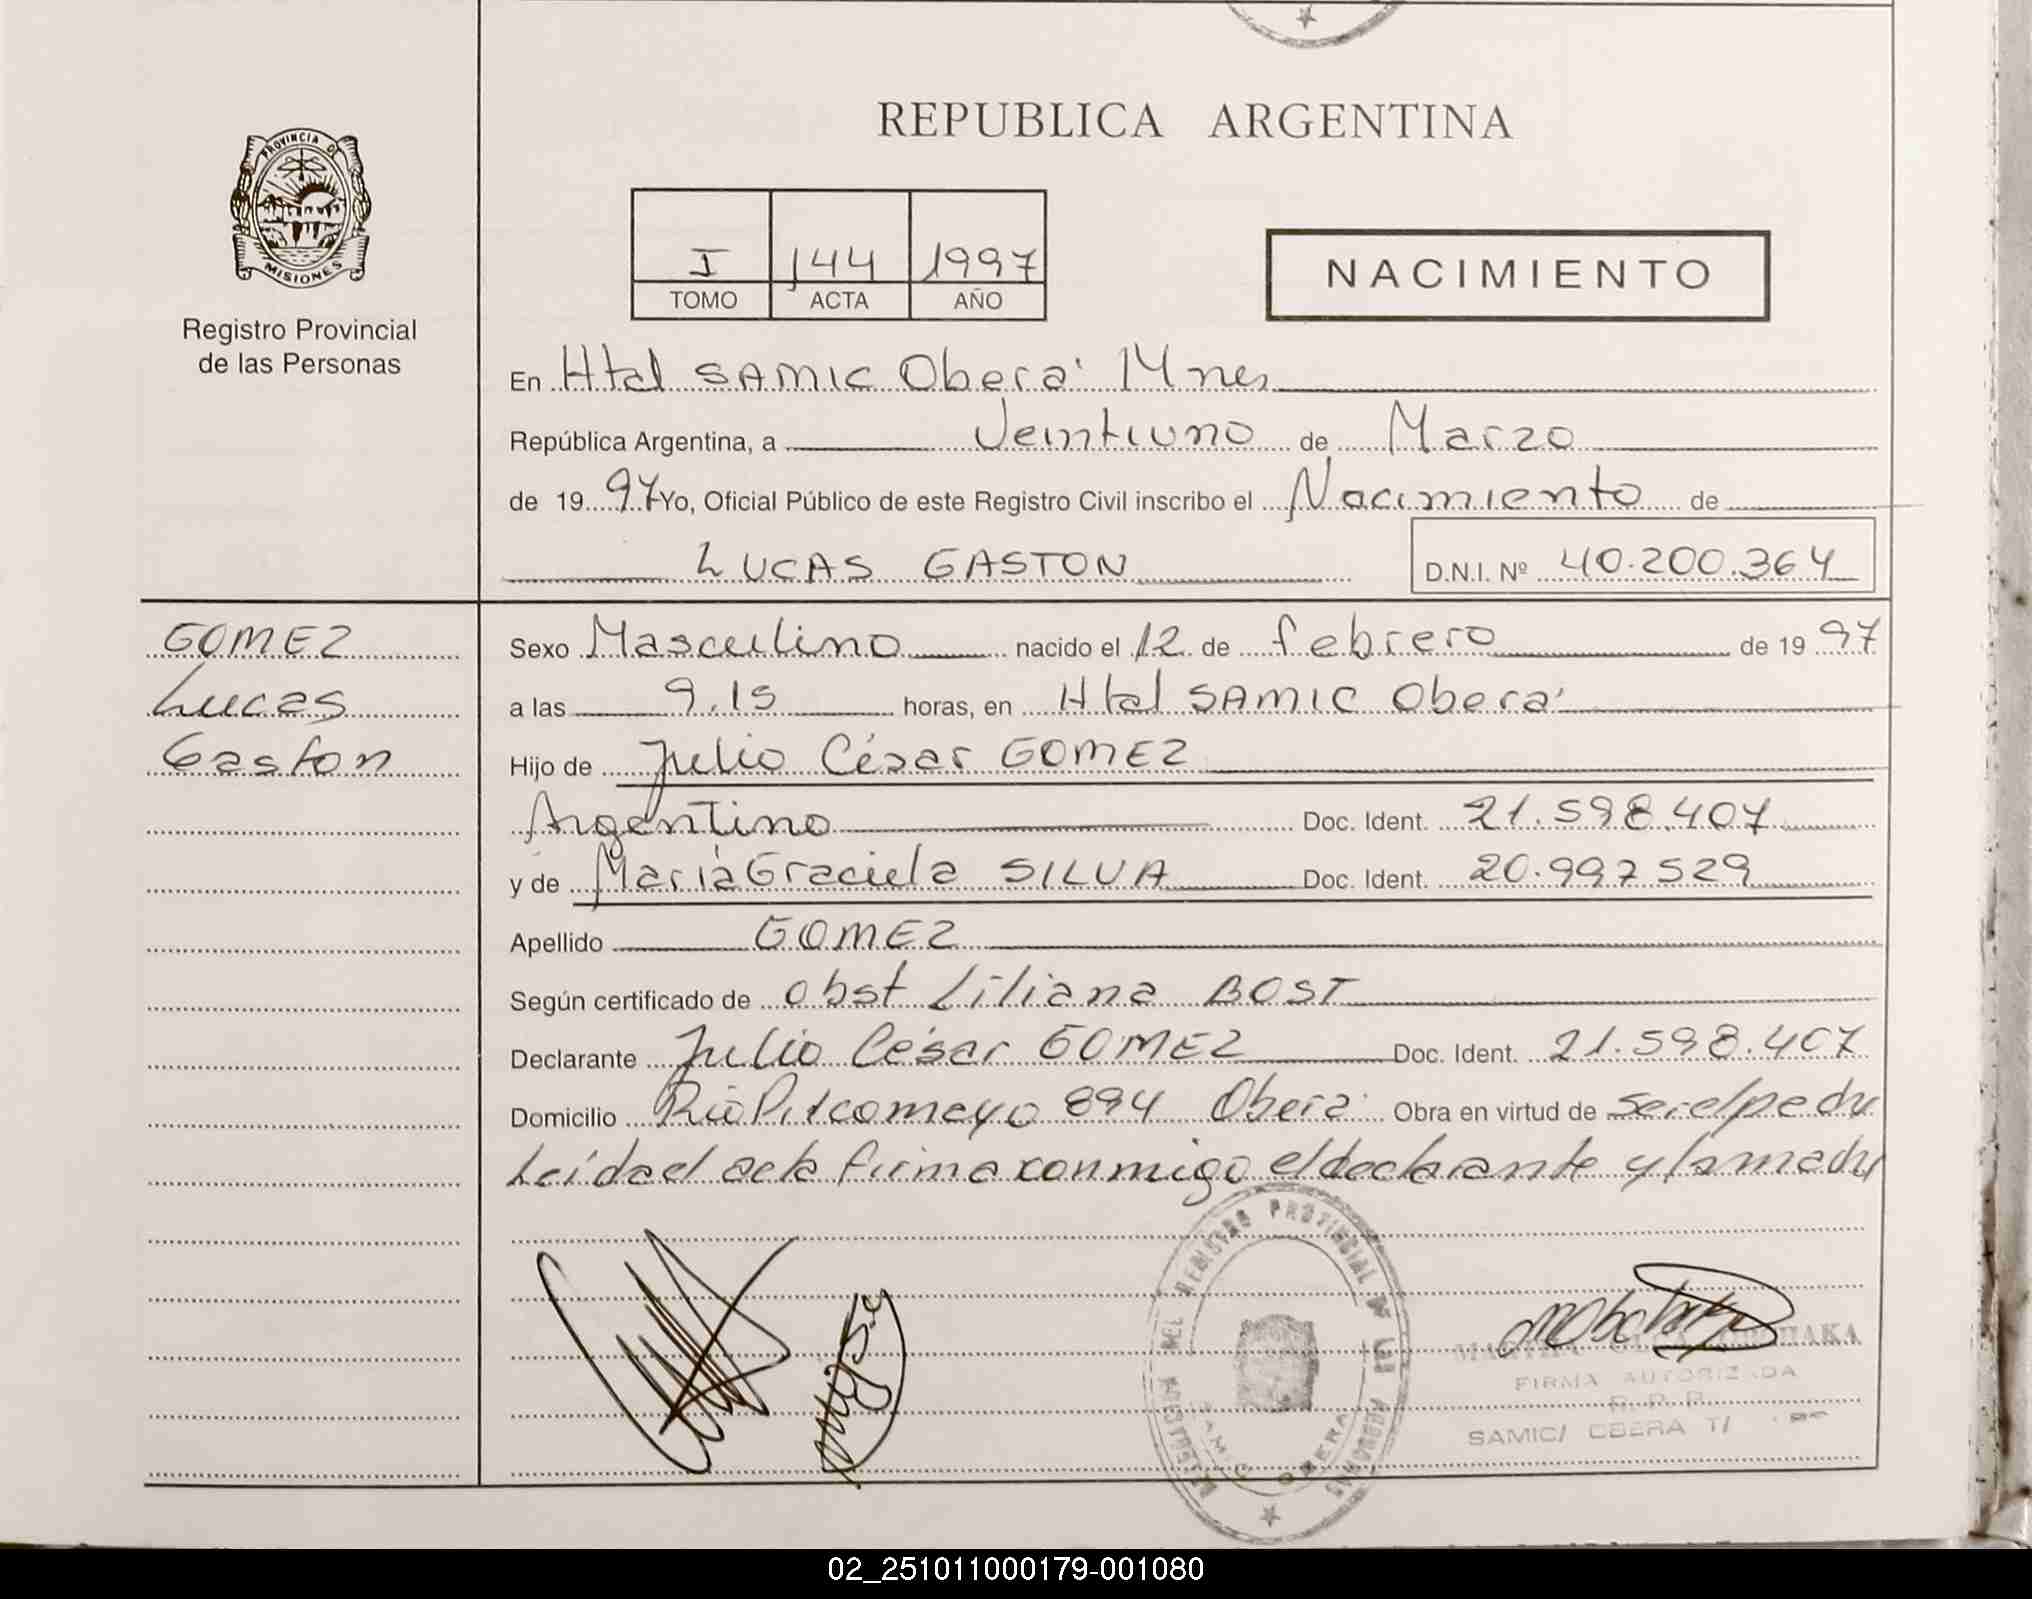 REPUBLICA ARGENTINA
PROVINCIA D
MISIONES
Registro Provincial
de las Personas
I 144 1997
TOMO ACTA AÑO
NACIMIENTO
En Htal SAMIC Oberá Mnes
República Argentina, a Veintiuno de Marzo
de 1997 Yo, Oficial Público de este Registro Civil inscribo el Nacimiento de
LUCAS GASTON D.N.I. Nº 40.200.364
GOMEZ
Lucas
Gaston
Sexo Masculino nacido el 12 de febrero de 1997
a las 9,15 horas, en Htal SAMIC Oberá
Hijo de Julio César GOMEZ
Argentino Doc. Ident. 21.598.407
y de María Graciela SILVA Doc. Ident. 20.997.529
Apellido GOMEZ
Según certificado de obst Liliana BOST
Declarante Julio César GOMEZ Doc. Ident. 21.598.407
Domicilio Río Pilcomayo 894 Oberá Obra en virtud de ser el padre
Leída el acta firman conmigo el declarante y la madre
DEL REGISTRO PROVINCIAL DE LAS PERSONAS
SAMIC OBERA
FIRMA AUTORIZADA
R.P.P.
SAMIC/ OBERA
02_251011000179-001080